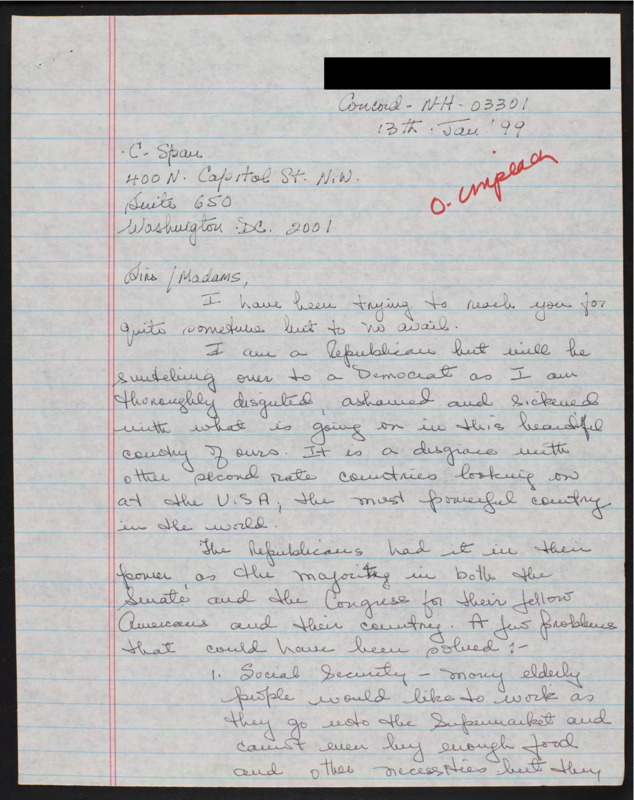 Concord - NH - 03301
13th. Jan '99
C- Span
400 N. Capitol St. N.W.
Suite 650
Washington D.C. 2001
O. impeach
Sirs / Madams,
I have been trying to reach you for
quite sometime but to no avail.
I am a Republican but will be
switching over to a Democrat as I am
thoroughly disguted, ashamed and sickened
with what is going on in this beautiful
country of ours. It is a disgrace with
other second rate countries looking on
at the U.S.A, the most powerful country
in the world.
The Republicans had it in their
power, as the majority in both the
Senate and the Congress for their fellow
Americans and their country. A few problems
that could have been solved :-
1. Social Security - many elderly
people would like to work as
they go into the Supermarket and
cannot even buy enough food
and other necessities but they